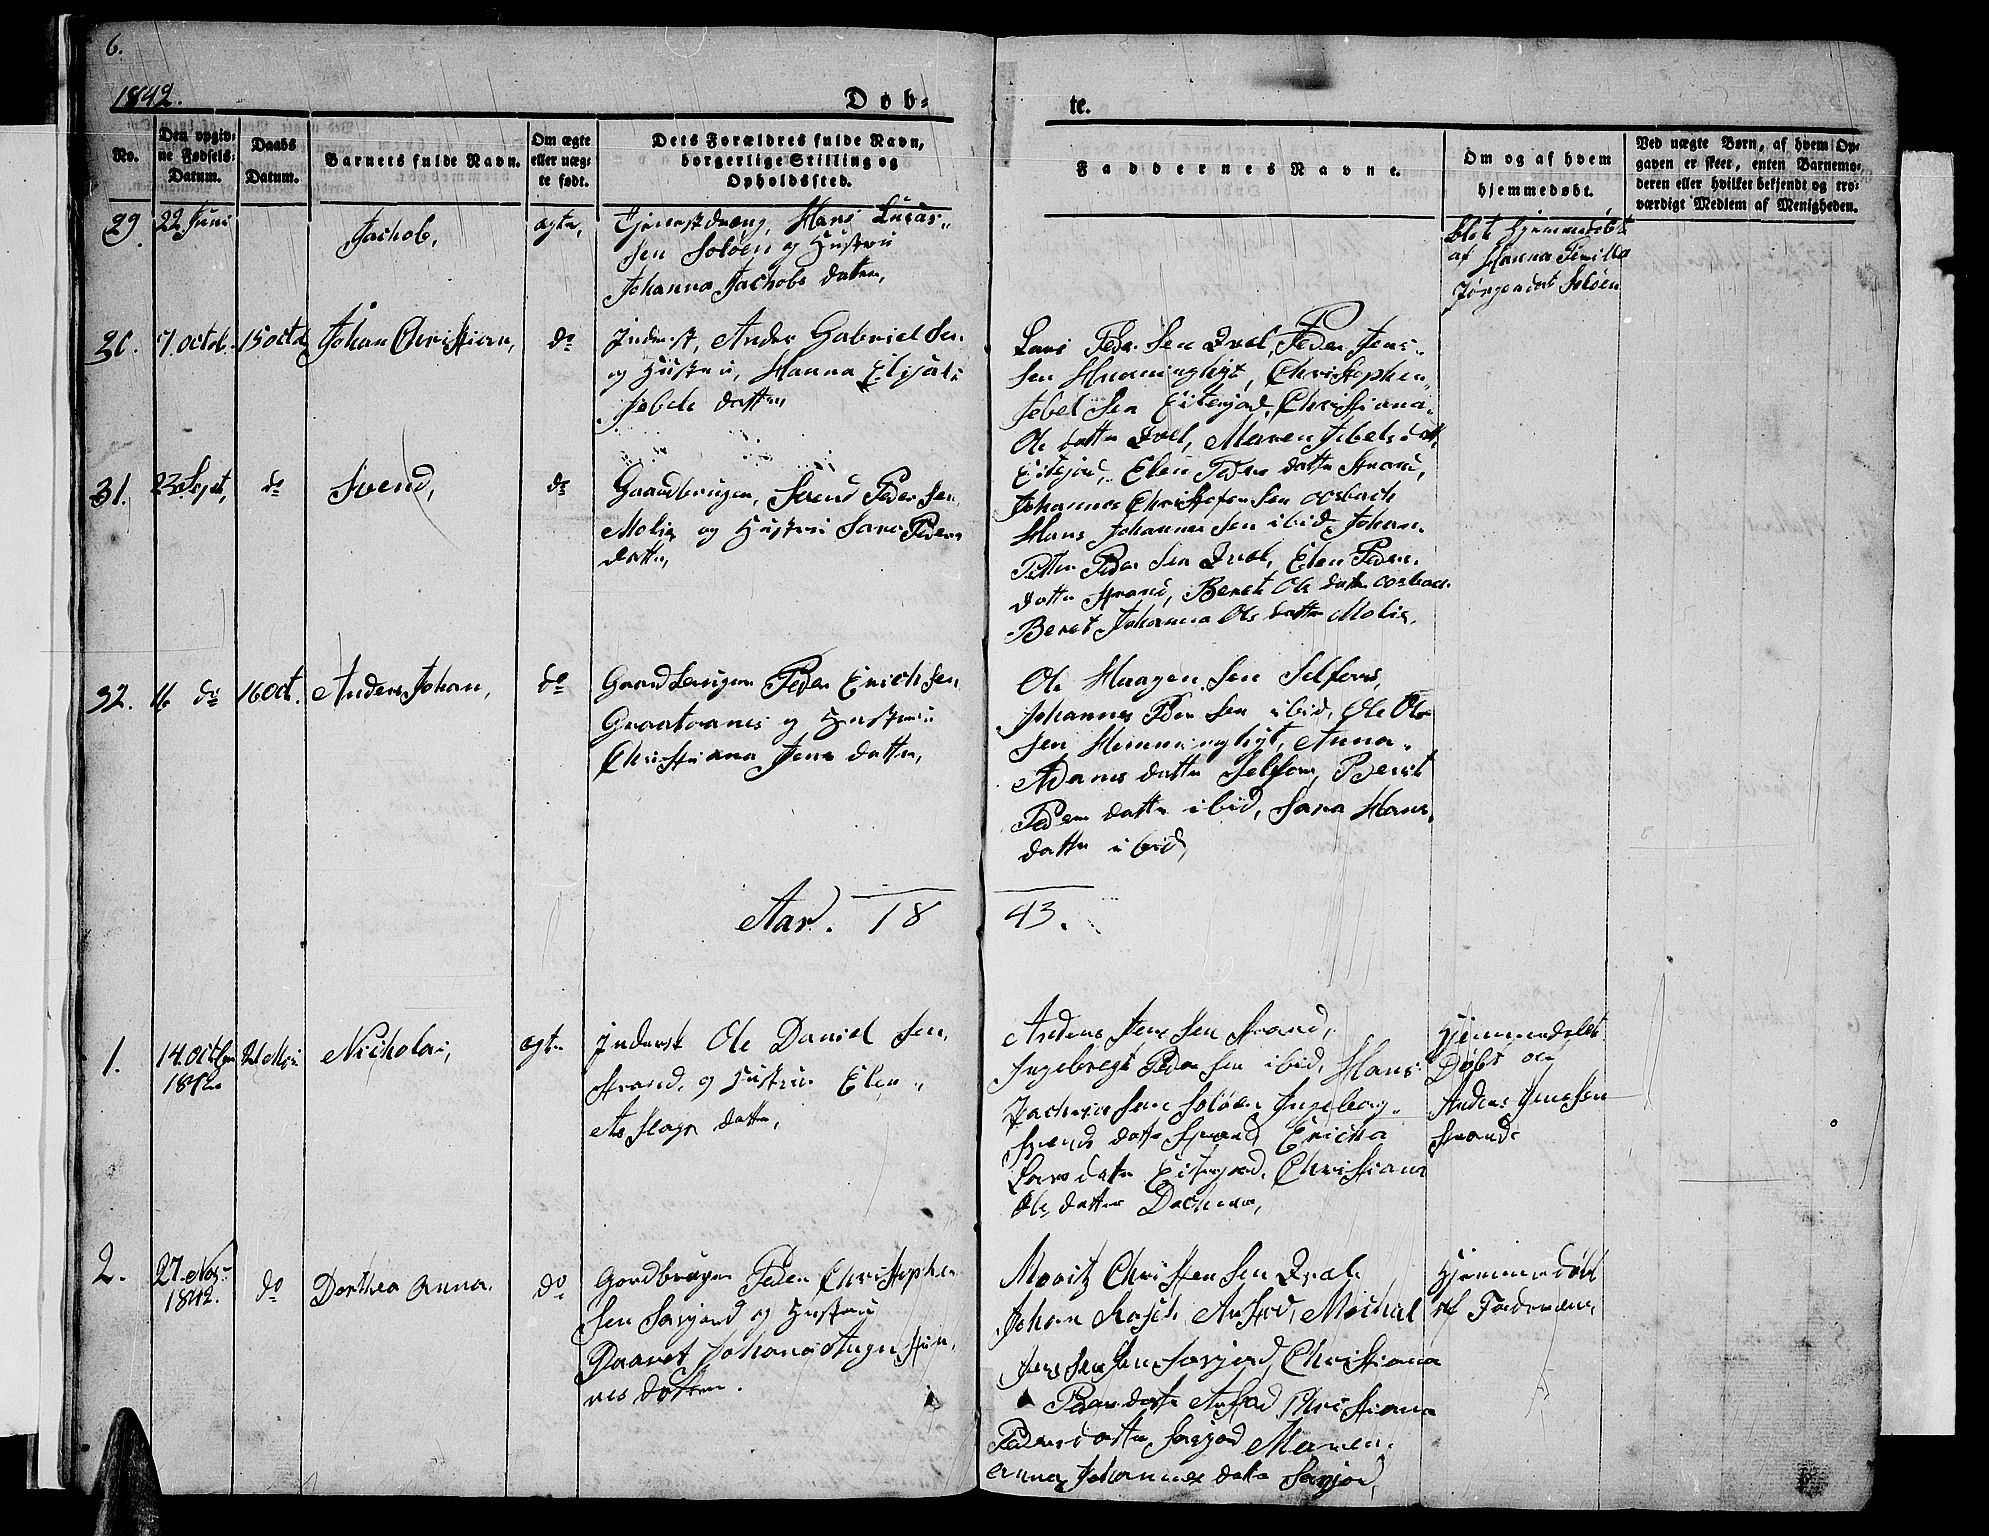 6.
1842.
Døb-
te.
No.
Den opgiv-
ne Fødsels-
Datum.
Daabs
Datum.
Barnets fulde Navn.
Om ægte
eller uæg-
te født.
Dets Forældres fulde Navn,
borgerlige Stilling og
Opholdssted.
Faddernes Navne.
Om og af hvem
hjemmedøbt.
Ved uægte Børn, af hvem Op-
gaven er skeet, enten Barnemo-
deren eller hvilket bekjendt og tro-
værdigt Medlem af Menigheden.
29 22 Juni
Jachob,
ægte,
Tjenestdræng, Hans Lucas-
sen Soløen og Hustru
Johanna Jachobs datter,
blet Hjemmedøbt
af Hanna
Jørgensdat Soløen
30. 7. octob. 15 octb Johan Christian, do
Inderst, Anders Gabriel Sen
og Hustru, Hanna Elisabe
datter
Lars Peder Sen Qval, Peder Jens-
sen Hemminghÿt, Christophen
Sen Eiterjord, Christiana
Ole datter Qval, Maren
Eiterjord, Elen Peders datter Strand,
31. 23 Sept, do Svend, do
Gaardbrugen, Svend Peder Sen
Molie og Hustru Sara Peders
datter,
Johannes Christofer Sen oosbach
Hans Johannes Sen ibid, Johan
Petter Peder Sen Qval, Elen Peders
datter Strand, Beret Ole datter oosbach
Beret Johanna Ols datter Molie,
32. 11 do 16 oct. Anders Johan, do
Gaardbrugen Peder Erich Sen
Graatvanes og Hustru
Christiana Jens datter,
Ole Haagen Sen Selfors,
Johannes Peder Sen ibid, Ole Ole
sen Hemminghÿt, Anna
Adams datter Selfors, Beret
Peders datter ibid, Sara Hans
datter ibid,
Aar. 18
43.
1. 14. octbr 2d Mai Nicholai, ægte
1842
Inderst Ole Daniel Sen
Strand, og Hustru Elen
Aslags datter,
Anders Jens Sen Strand,
Ingebregt Peder Sen ibid, Hans
Zacharias Sen Soløen Ingeborg
Svends datter Strand, Ericha
Lars datter Eiterjord, Christiana
Ole datter
Hjemmedøbt
Døbt af
Anders Jens Sen
Strand
2. 27. Nov.
1842. do Dorthea Anna. do
Gordbrugen Peder Christophe
Sen Sorjord og Hustru
Johana Augustin
datter.
Moritz Christen Sen Qval
Johan Rasch, Michal
Jens Sen Sorjord, Christiana
Peders datter Christiana
Peders datter Sorjord Maren
Anna Johannes datter Sorjord,
Hjemmedøbt
af Faderen,